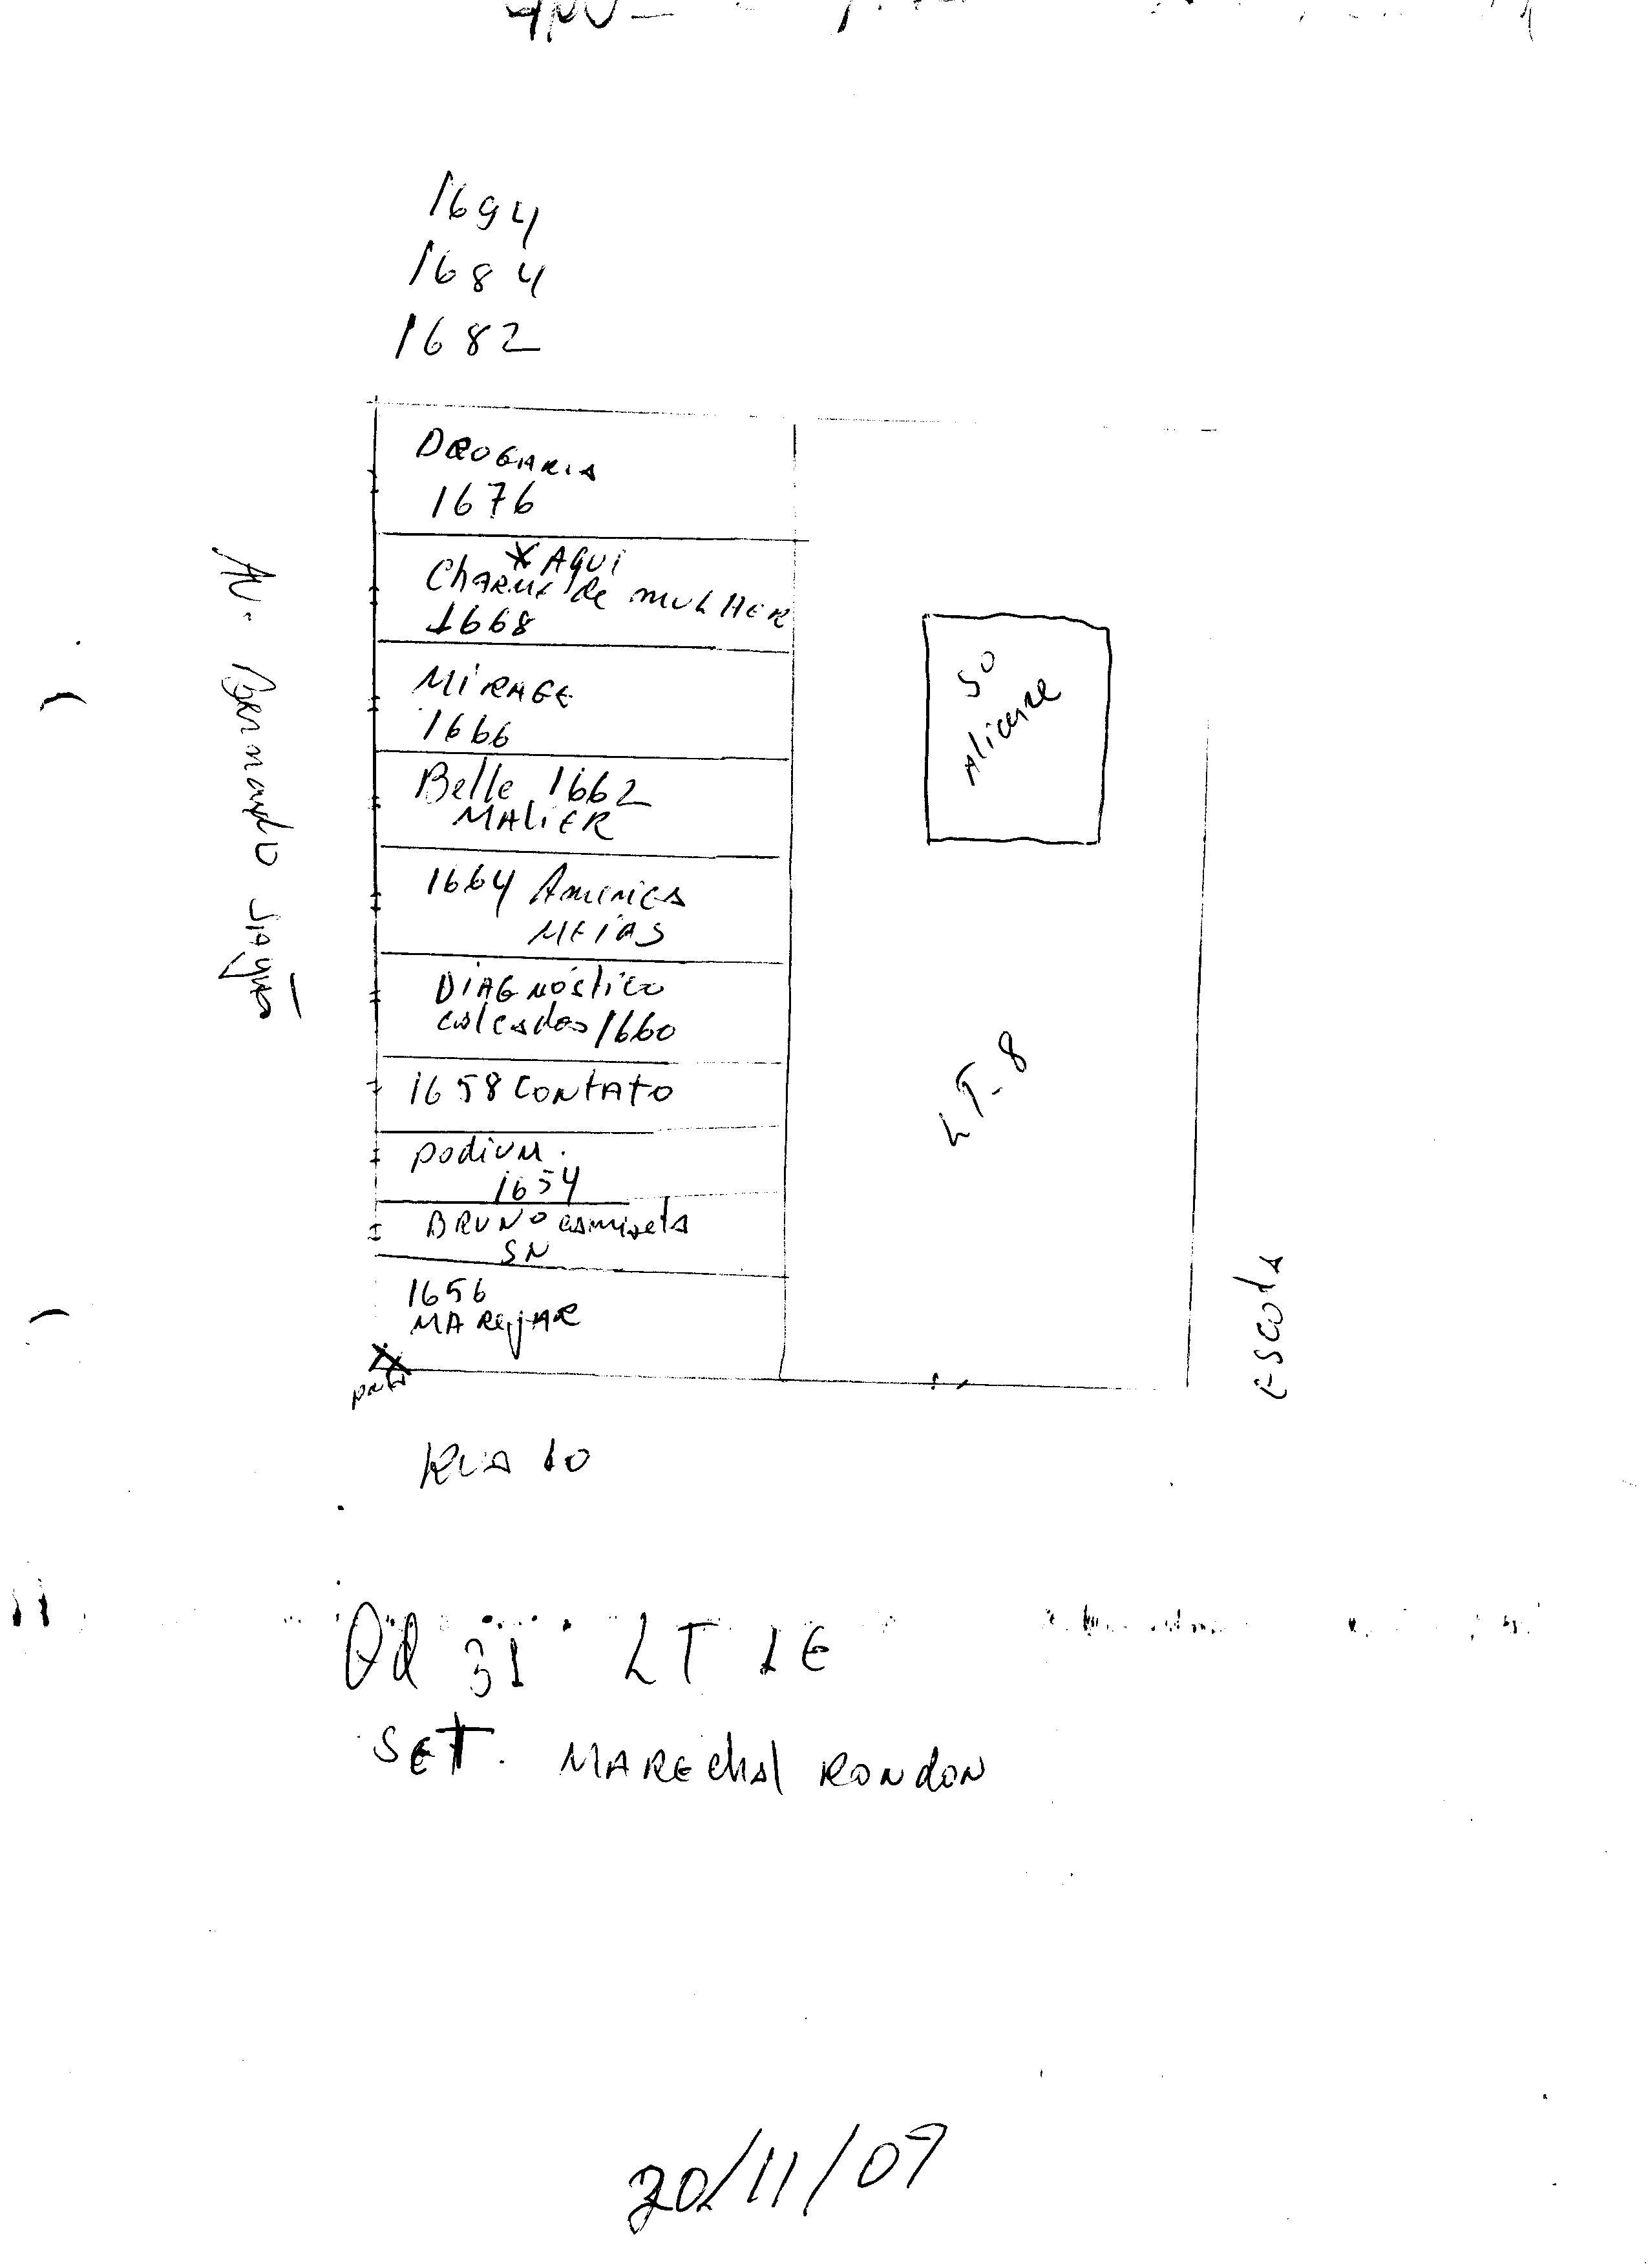 1694
1684
1682
DROGARIA
1676
* AQUI
CHARME de MULHER
1668
MIRAGE
1666
Belle 1662
MALIER
1664 AMERICA
MEIAS
DIAGNÓSTICO
calcados 1660
1658 CONTATO
podium.
1654
BRUNO camiseta
SN
1656
MAREJAR
Av. Bernardo Sayão
SO
Alicerce
LT-8
Escola
RUA 10
QD 31 LT 1E
SET. MARECHAL RONDON
20/11/07